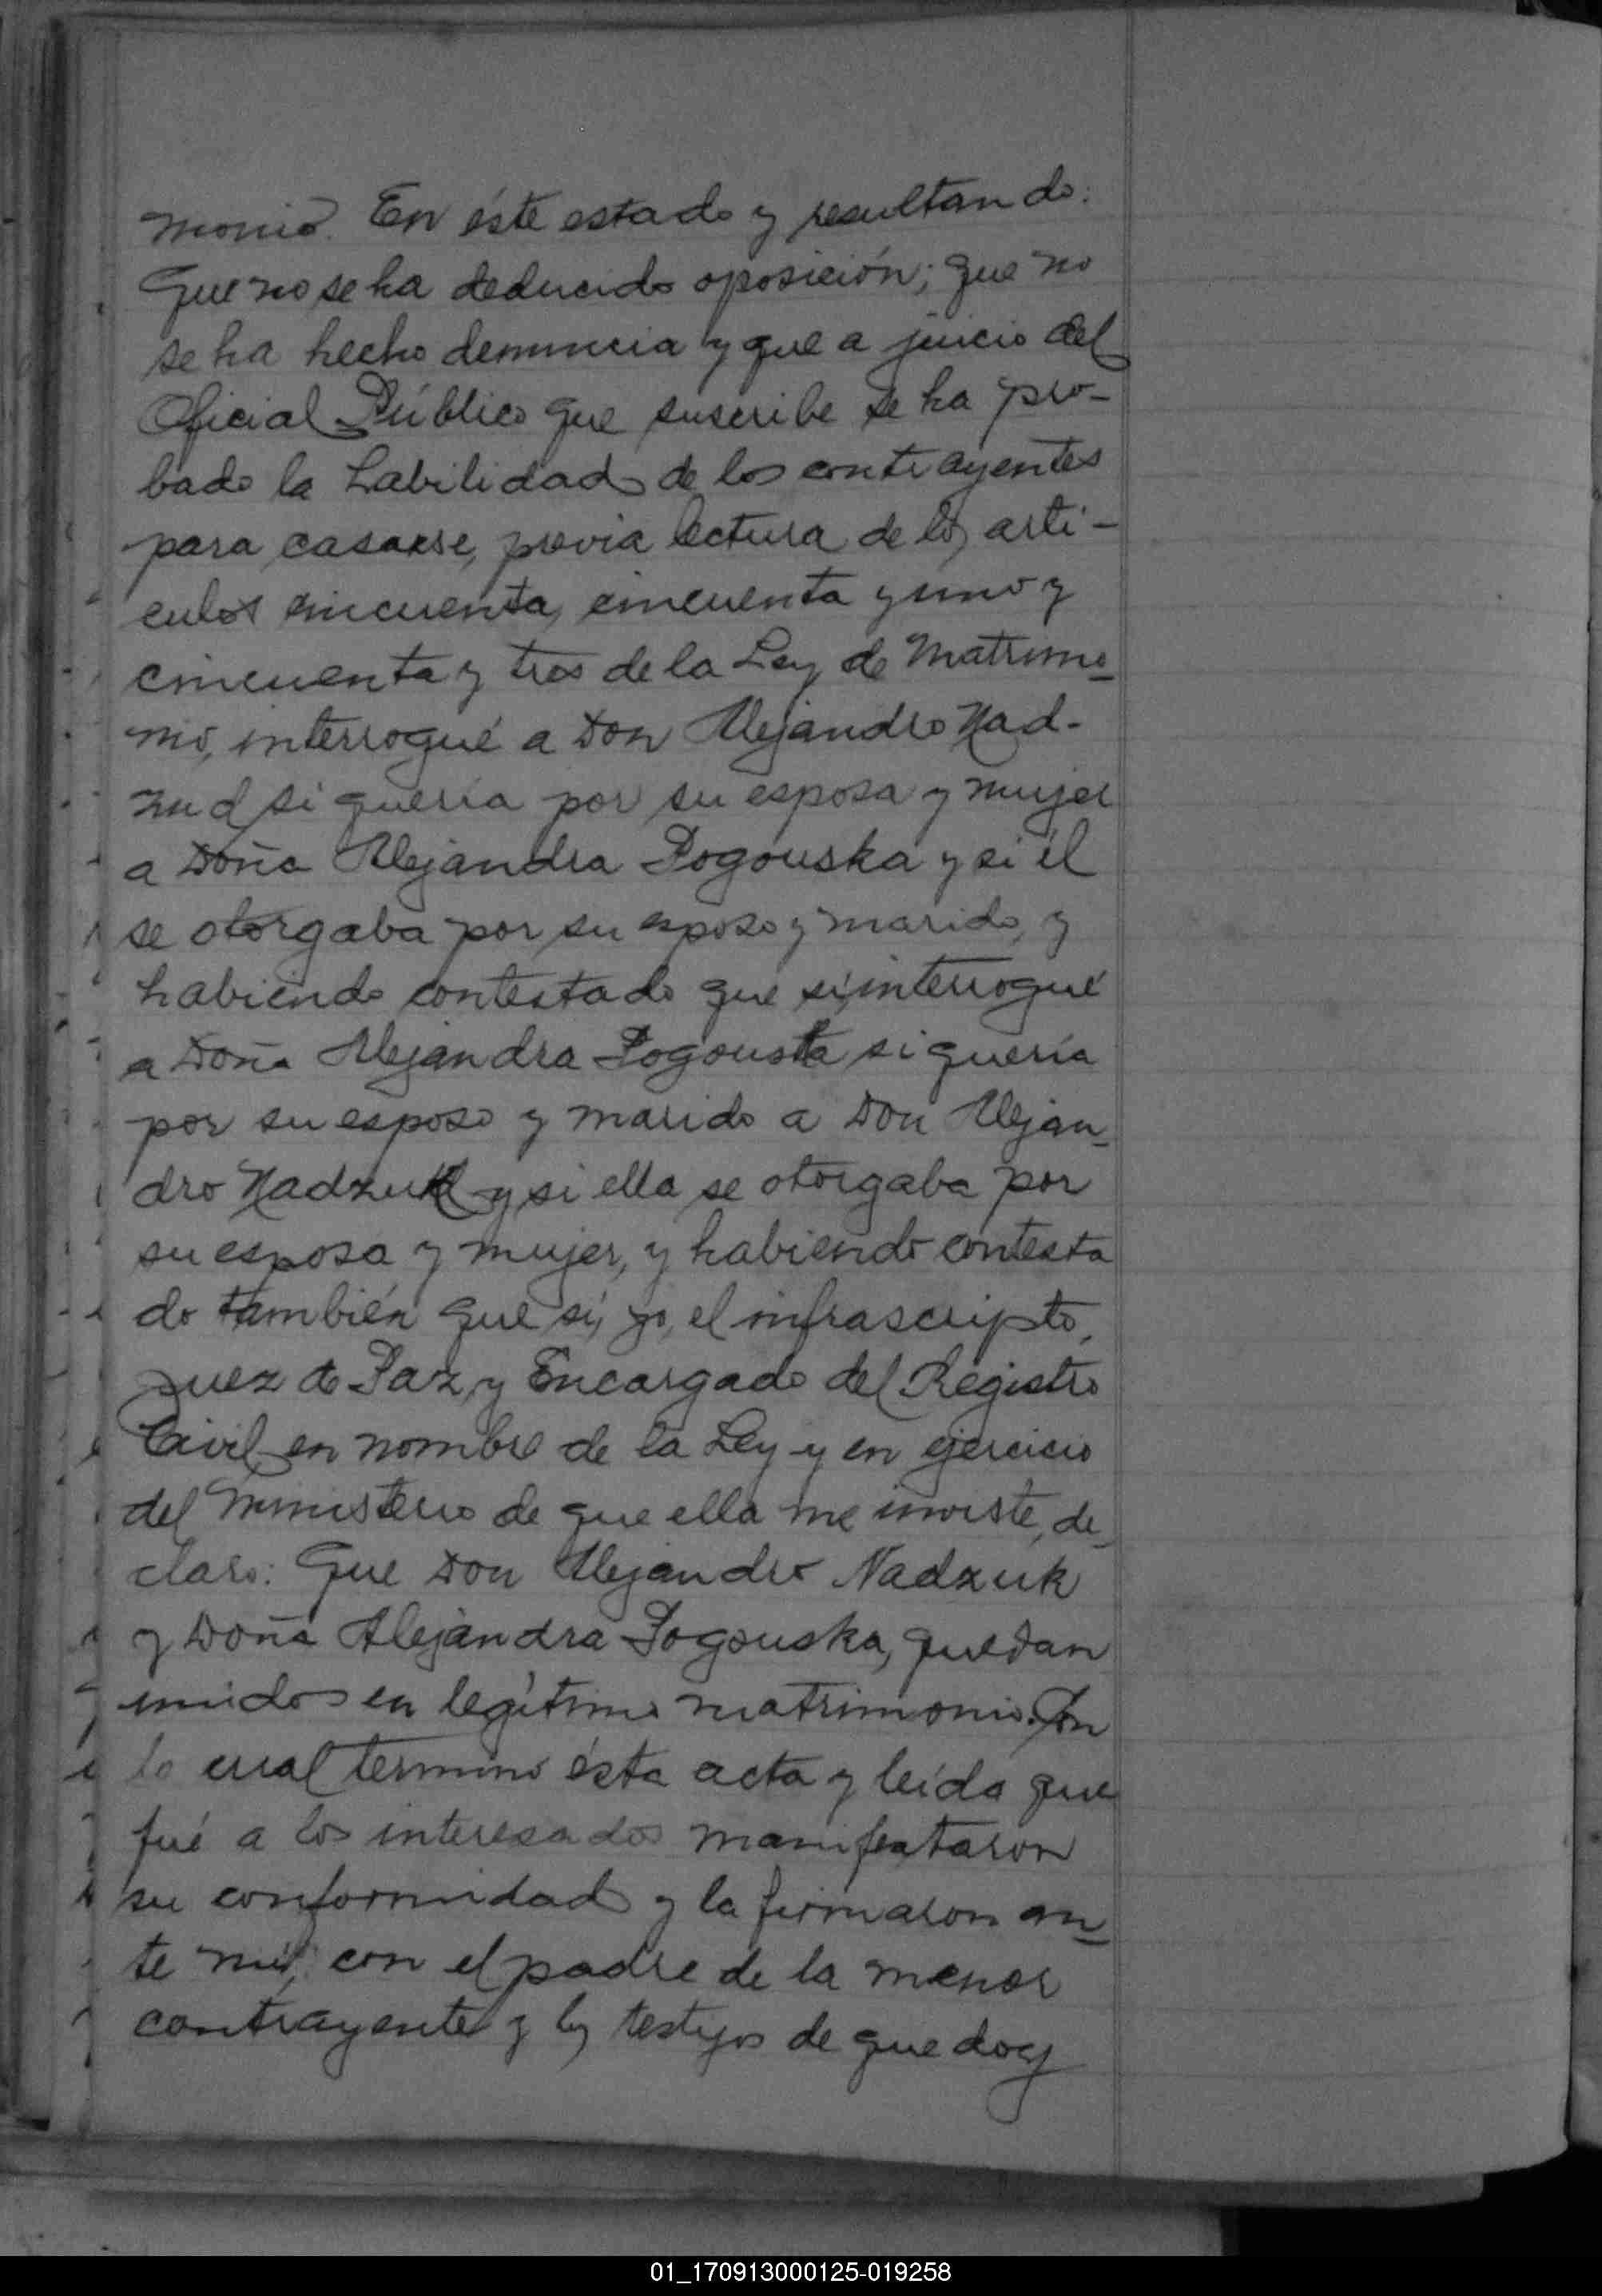 monio. En éste estado y resultando:
Que no se ha deducido oposición; que no
se ha hecho denuncia y que a juicio del
Oficial Público que suscribe se ha pro-
bado la habilidad de los contrayentes
para casarse, previa lectura de los artí-
culos cincuenta, cincuenta y uno y
cincuenta y tres de la Ley de Matrimo-
nio, interrogué a Don Alejandro Nad-
zud si quería por su esposa y mujer
a Doña Alejandra Pogouska y si él
se otorgaba por su esposo y marido, y
habiendo contestado que sí, interrogué
a Doña Alejandra Pogouska si quería
por su esposo y marido a Don Alejan-
dro Nadzuk y si ella se otorgaba por
su esposa y mujer, y habiendo contesta
do también que sí, yo, el infrascripto,
Juez de Paz y Encargado del Registro
Civil en nombre de la Ley y en ejercicio
del Ministerio de que ella me inviste, de-
claro: Que Don Alejandro Nadzuk
y Doña Alejandra Pogouska, quedan
unidos en legítimo matrimonio. Con
lo cual terminó ésta acta y leída que
fué a los interesados manifestaron
su conformidad y la firmaron an-
te mí, con el padre de la menor
contrayente y los testigos de que doy
01_170913000125-019258